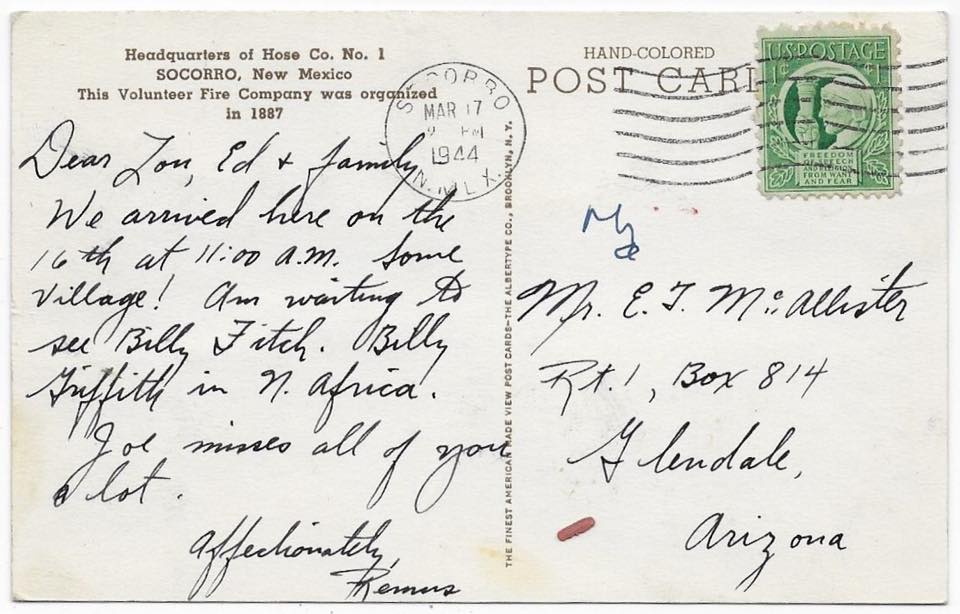 Headquarters of Hose Co. No. 1
SOCORRO, New Mexico
This Volunteer Fire Company was organized
in 1887
HAND-COLORED
POST CARD
SOCORRO
MAR 17
PM
1944
N. MEX.
U.S. POSTAGE
1¢ 1¢
FREEDOM
OF SPEECH
AND RELIGION
FROM WANT
AND FEAR
Dear Lou, Ed & family
We arrived here on the
16th at 11:00 a.m. Some
village! Am waiting to
see Billy Fitch. Billy
Griffith in N. Africa.
Joe misses all of you
a lot.
Affectionately,
Remus
THE FINEST AMERICAN MADE VIEW POST CARDS—THE ALBERTYPE CO., BROOKLYN, N. Y.
Mr. E. T. McAllister
Rt. 1, Box 814
Glendale,
Arizona